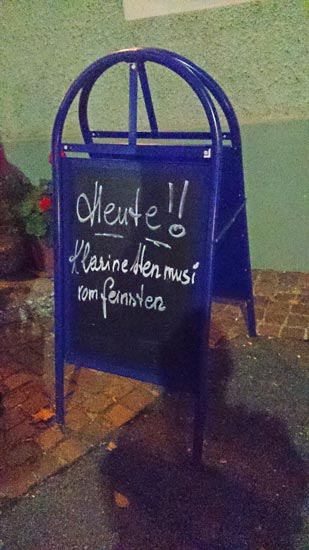 Heute!!
Klarinettenmusi
vom feinsten